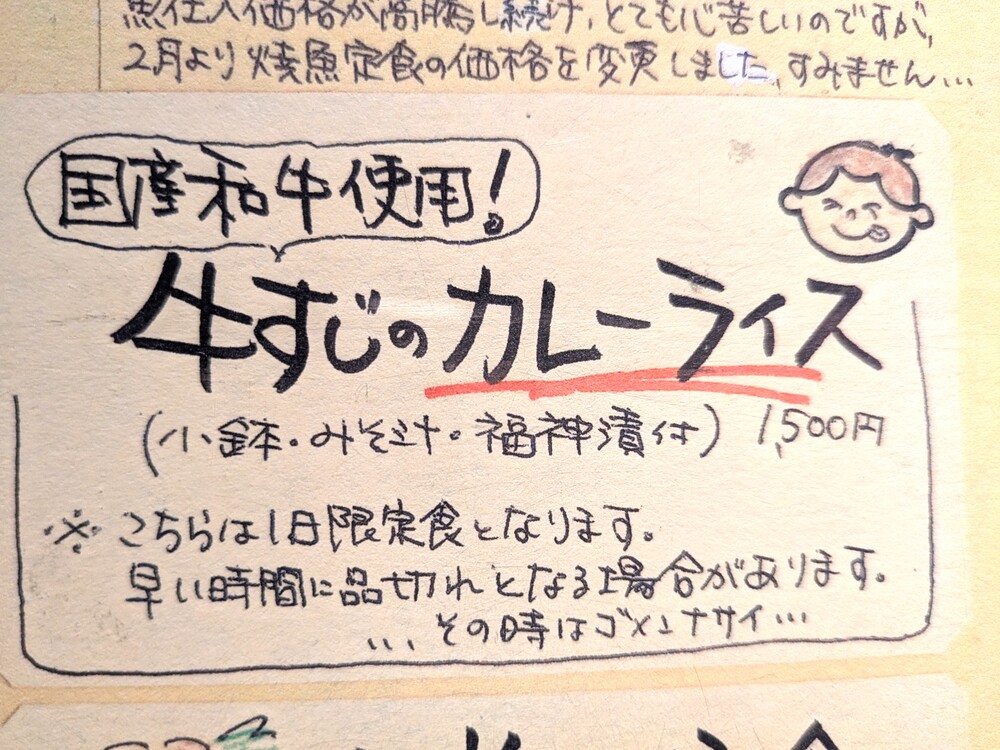 魚仕入価格が高騰し続け、とても心苦しいのですが、
2月より焼魚定食の価格を変更しました、すみません…
国産和牛使用!
牛すじのカレーライス
(小鉢・みそ汁・福神漬付) 1,500円
※こちらは1日限定食となります。
早い時間に品切れとなる場合があります。
…その時はゴメンナサイ…